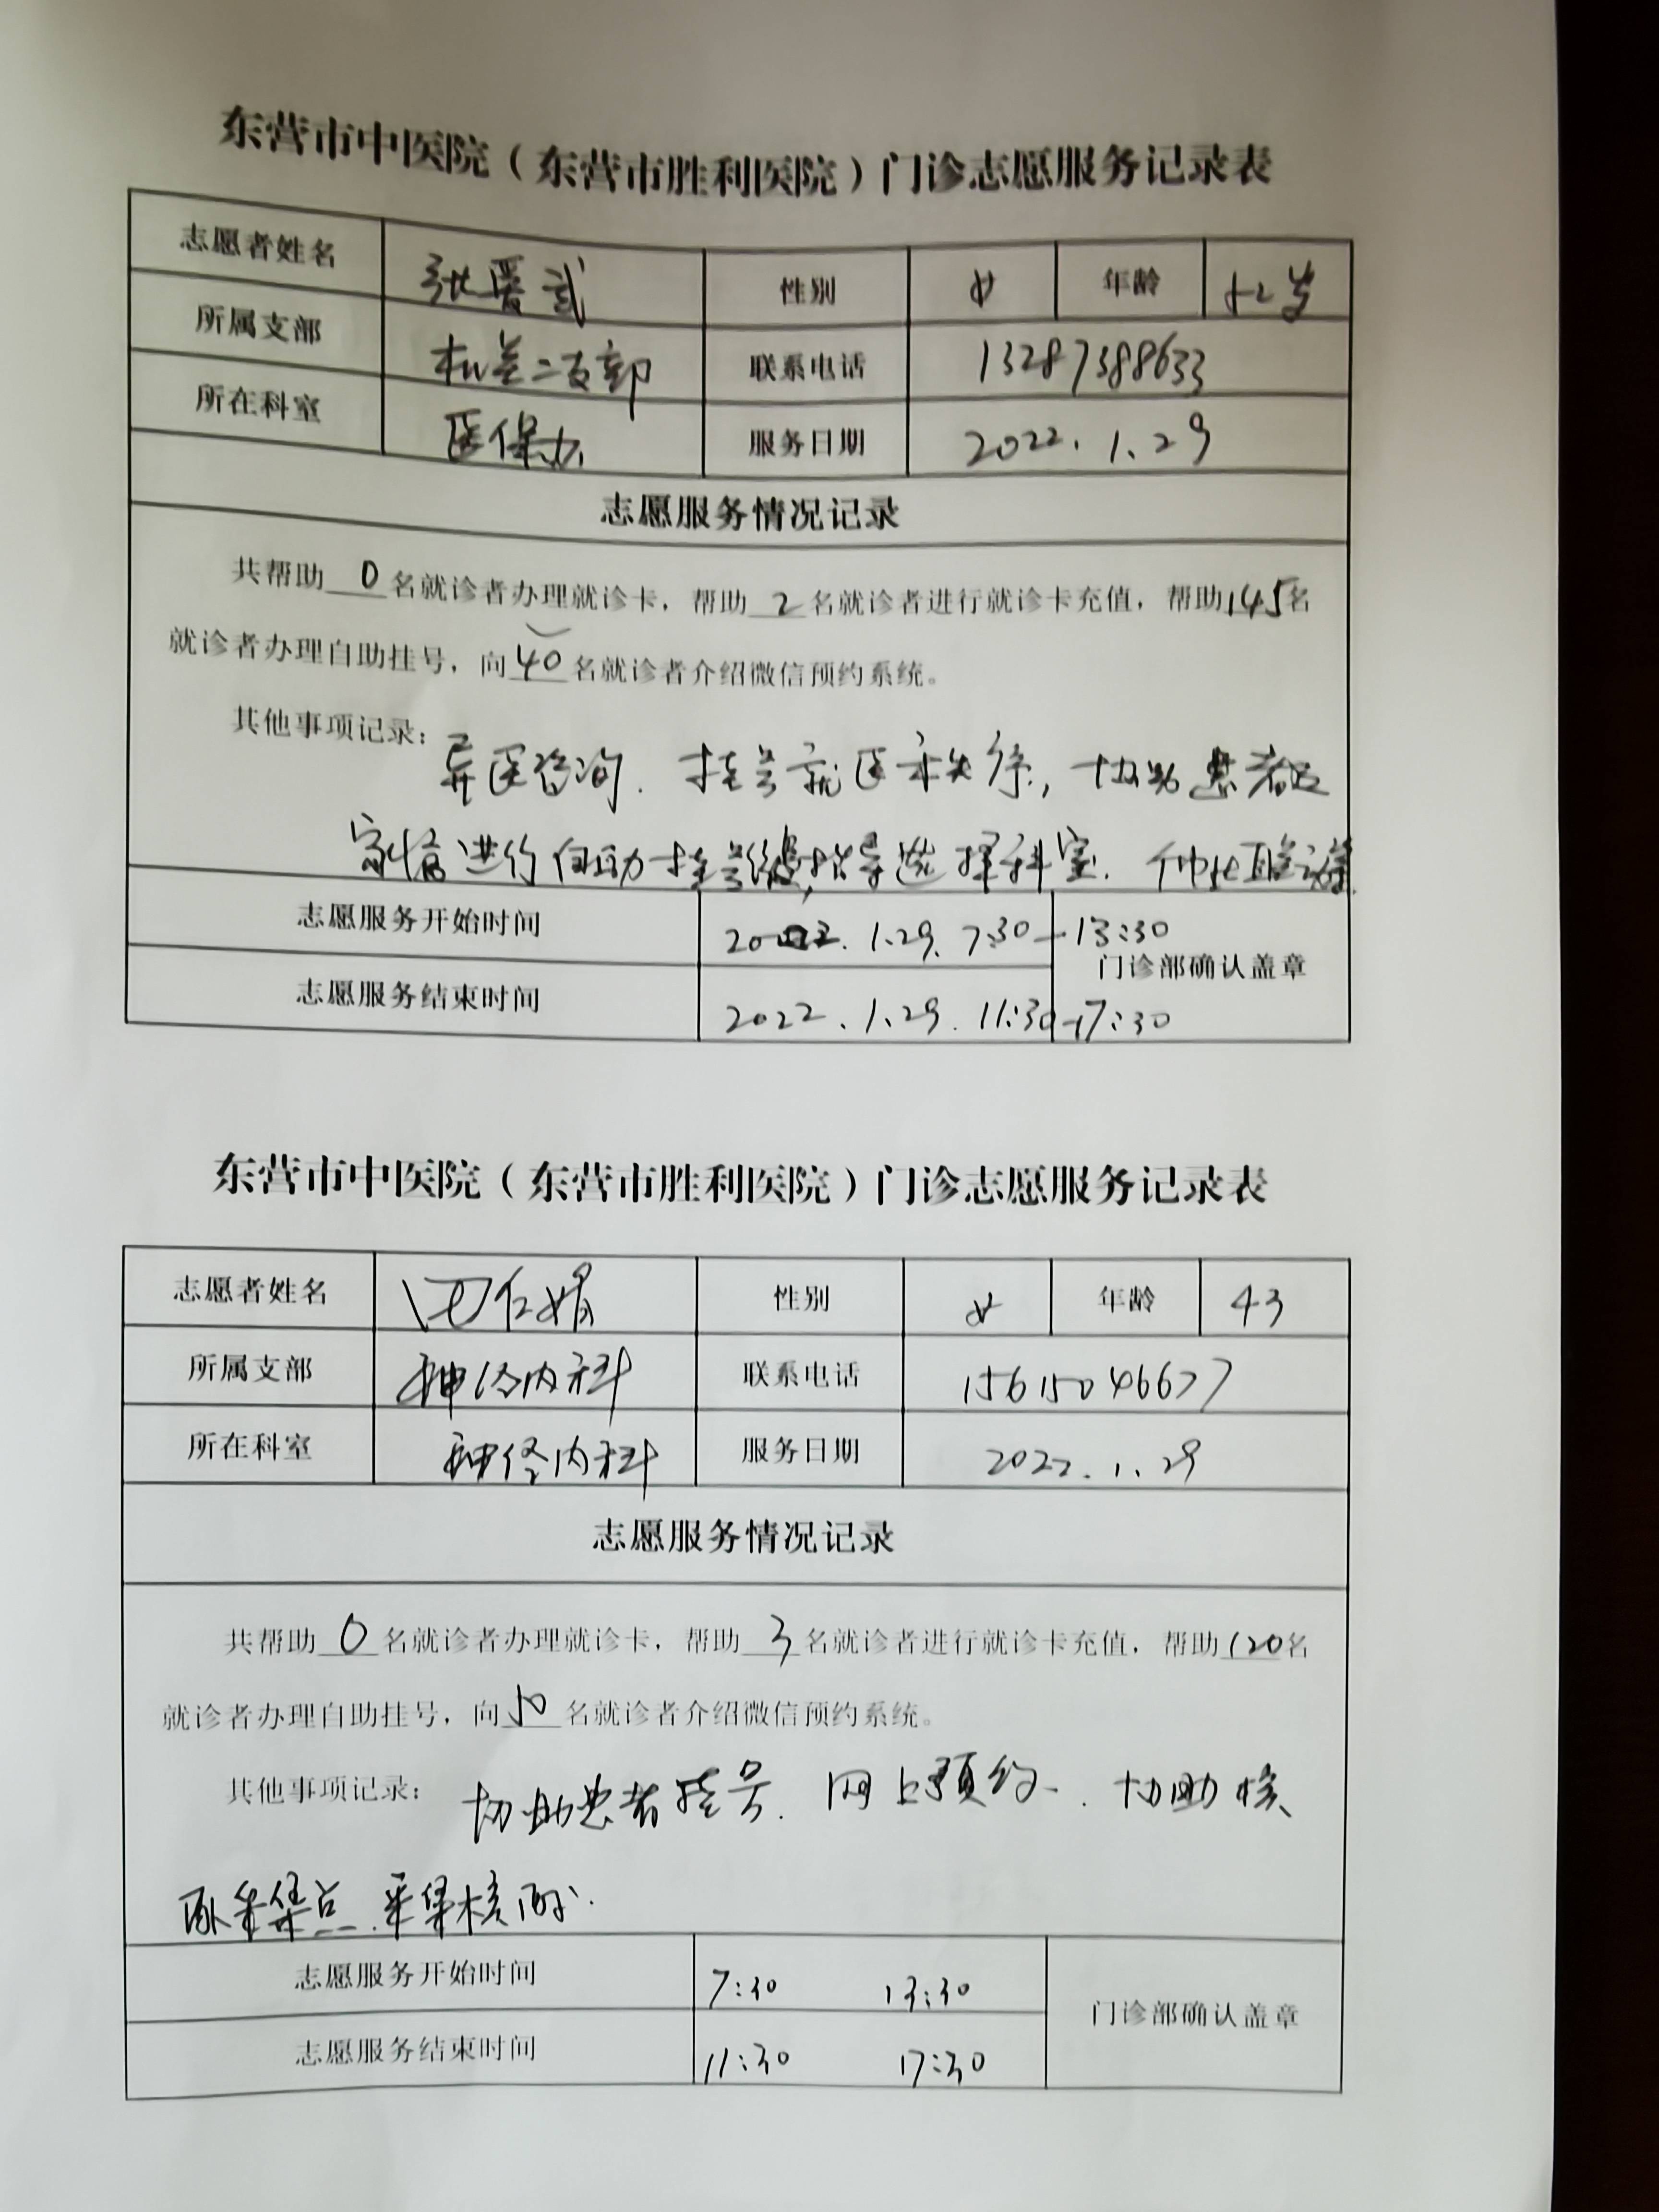 东营市中医院（东营市胜利医院）门诊志愿服务记录表
志愿者姓名 性别 女 年龄 52岁
所属支部 机关二支部 联系电话 13287388633
所在科室 医保办 服务日期 2022.1.29
志愿服务情况记录
共帮助0名就诊者办理就诊卡，帮助2名就诊者进行就诊卡充值，帮助145名
就诊者办理自助挂号，向40名就诊者介绍微信预约系统。
其他事项记录：导医咨询．挂号就医秩序，协助患者及
家属进行自助挂号缴费，指导选择科室．
志愿服务开始时间 2022.1.29.7:30—13:30
门诊部确认盖章
志愿服务结束时间 2022.1.29.11:30-17:30
东营市中医院（东营市胜利医院）门诊志愿服务记录表
志愿者姓名 性别 女 年龄 43
所属支部 神经内科 联系电话 15615046677
所在科室 神经内科 服务日期 2022.1.29
志愿服务情况记录
共帮助0名就诊者办理就诊卡，帮助3名就诊者进行就诊卡充值，帮助120名
就诊者办理自助挂号，向50名就诊者介绍微信预约系统。
其他事项记录：协助患者挂号．网上预约．协助核
酸采集点．采集核酸．
志愿服务开始时间 7:30 13:30
门诊部确认盖章
志愿服务结束时间 11:30 17:30